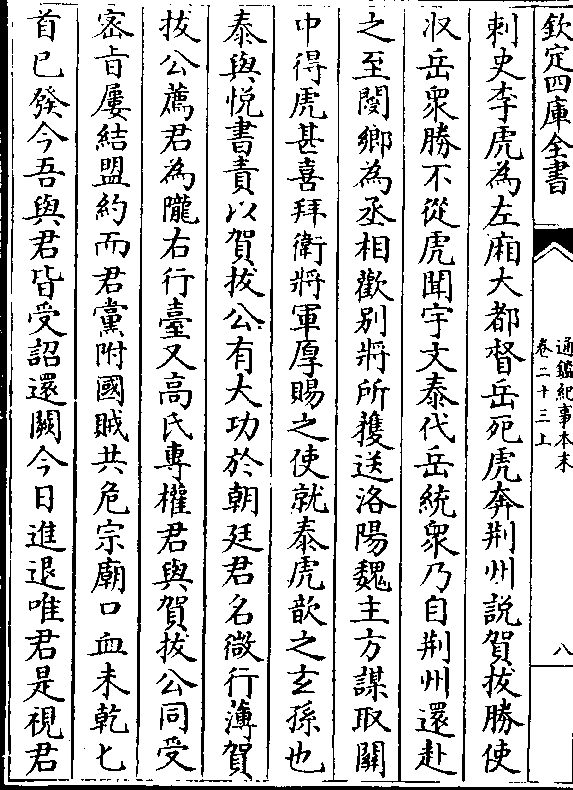 欽定四庫全書
通鑑紀事本末
卷二十三上
八
刺史李虎為左廂大都督岳死虎奔荆州說賀拔勝使
收岳衆勝不從虎聞宇文泰代岳統衆乃自荆州還赴
之至閿鄉為丞相歡别將所獲送洛陽魏主方謀取關
中得虎甚喜拜衛將軍厚賜之使就泰虎歆之玄孫也
泰與悅書責以賀拔公有大功於朝廷君名微行薄賀
拔公薦君為隴右行臺又高氏專權君與賀拔公同受
密旨屢結盟約而君黨附國賊共危宗廟口血未乾匕
首已發今吾與君皆受詔還闕今日進退唯君是視君